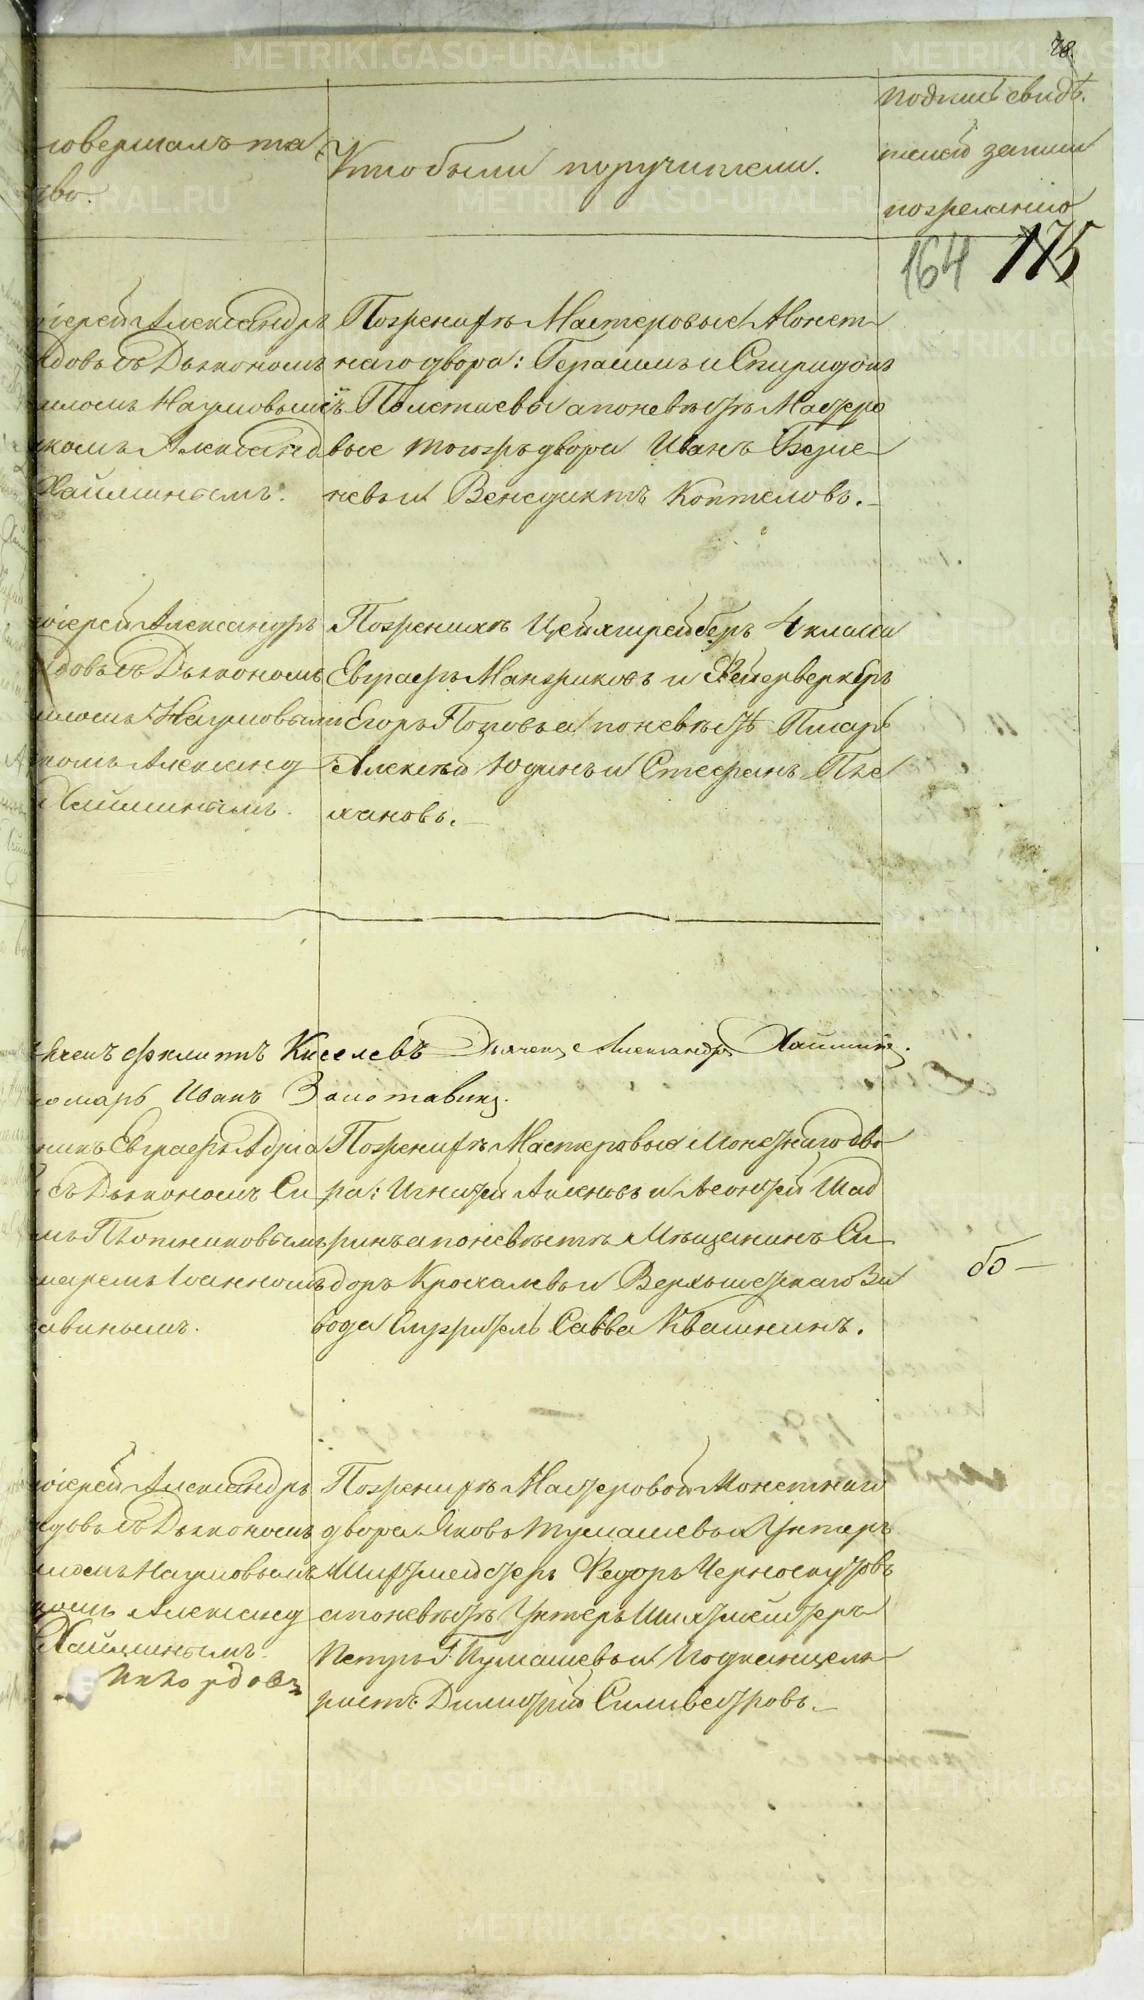 78.
совершалъ та
во.
Кто были поручители.
подпись свидѣ
телей записи
по желанію
164 175
іерей Александръ
довъ съ Дьякономъ
иломъ Наумовымъ
комъ Александ
Хайминымъ.
По женихѣ Мастеровые Монет
наго двора: Герасимъ и Спиридонъ
Полетаевы а по невѣстѣ Мастеро
вые тогожъ двора Иванъ Безме
невъ и Венедиктъ Коптеловъ.
оіерей Александръ
довъ съ Дьякономъ
иломъ Наумовымъ
комъ Александ
Хайминымъ.
По женихѣ Цейхшрейберъ 4 класса
Евграфъ Манжиковъ и Фейерверкеръ
Егоръ Поповъ а по невѣстѣ Писаря
Алексѣй Юдинъ и Стефанъ Пле
хановъ.
Филитъ Киселевъ Дьячекъ Александръ Хайминъ.
омарь Иванъ Золотавинъ.
никъ Евграфъ Адріа
съ Дьякономъ Си
мъ Плотниковымъ
маремъ Іоанномъ
авинымъ.
По женихѣ Мастеровые Монетнаго дво
ра: Игнатей Аленовъ и Леонтей Шад
ринъ а по невѣстѣ Мѣщанинъ Си
доръ Крохалевъ и Верхъисетскаго За
вода Служитель Савва Квашнинъ.
60 —
оіерей Александръ
довъ съ Дьякономъ
иломъ Наумовымъ
комъ Александ
Хайминымъ.
По женихѣ Мастеровой Монетнаго
двора Яковъ Тумашевъ и Унтеръ
Шихтмейстеръ Федоръ Черноскутовъ
а по невѣстѣ Унтеръ Шихтмейстеръ
Петръ Тумашевъ и Подканцеля
ристъ Димитрій Силивестровъ.